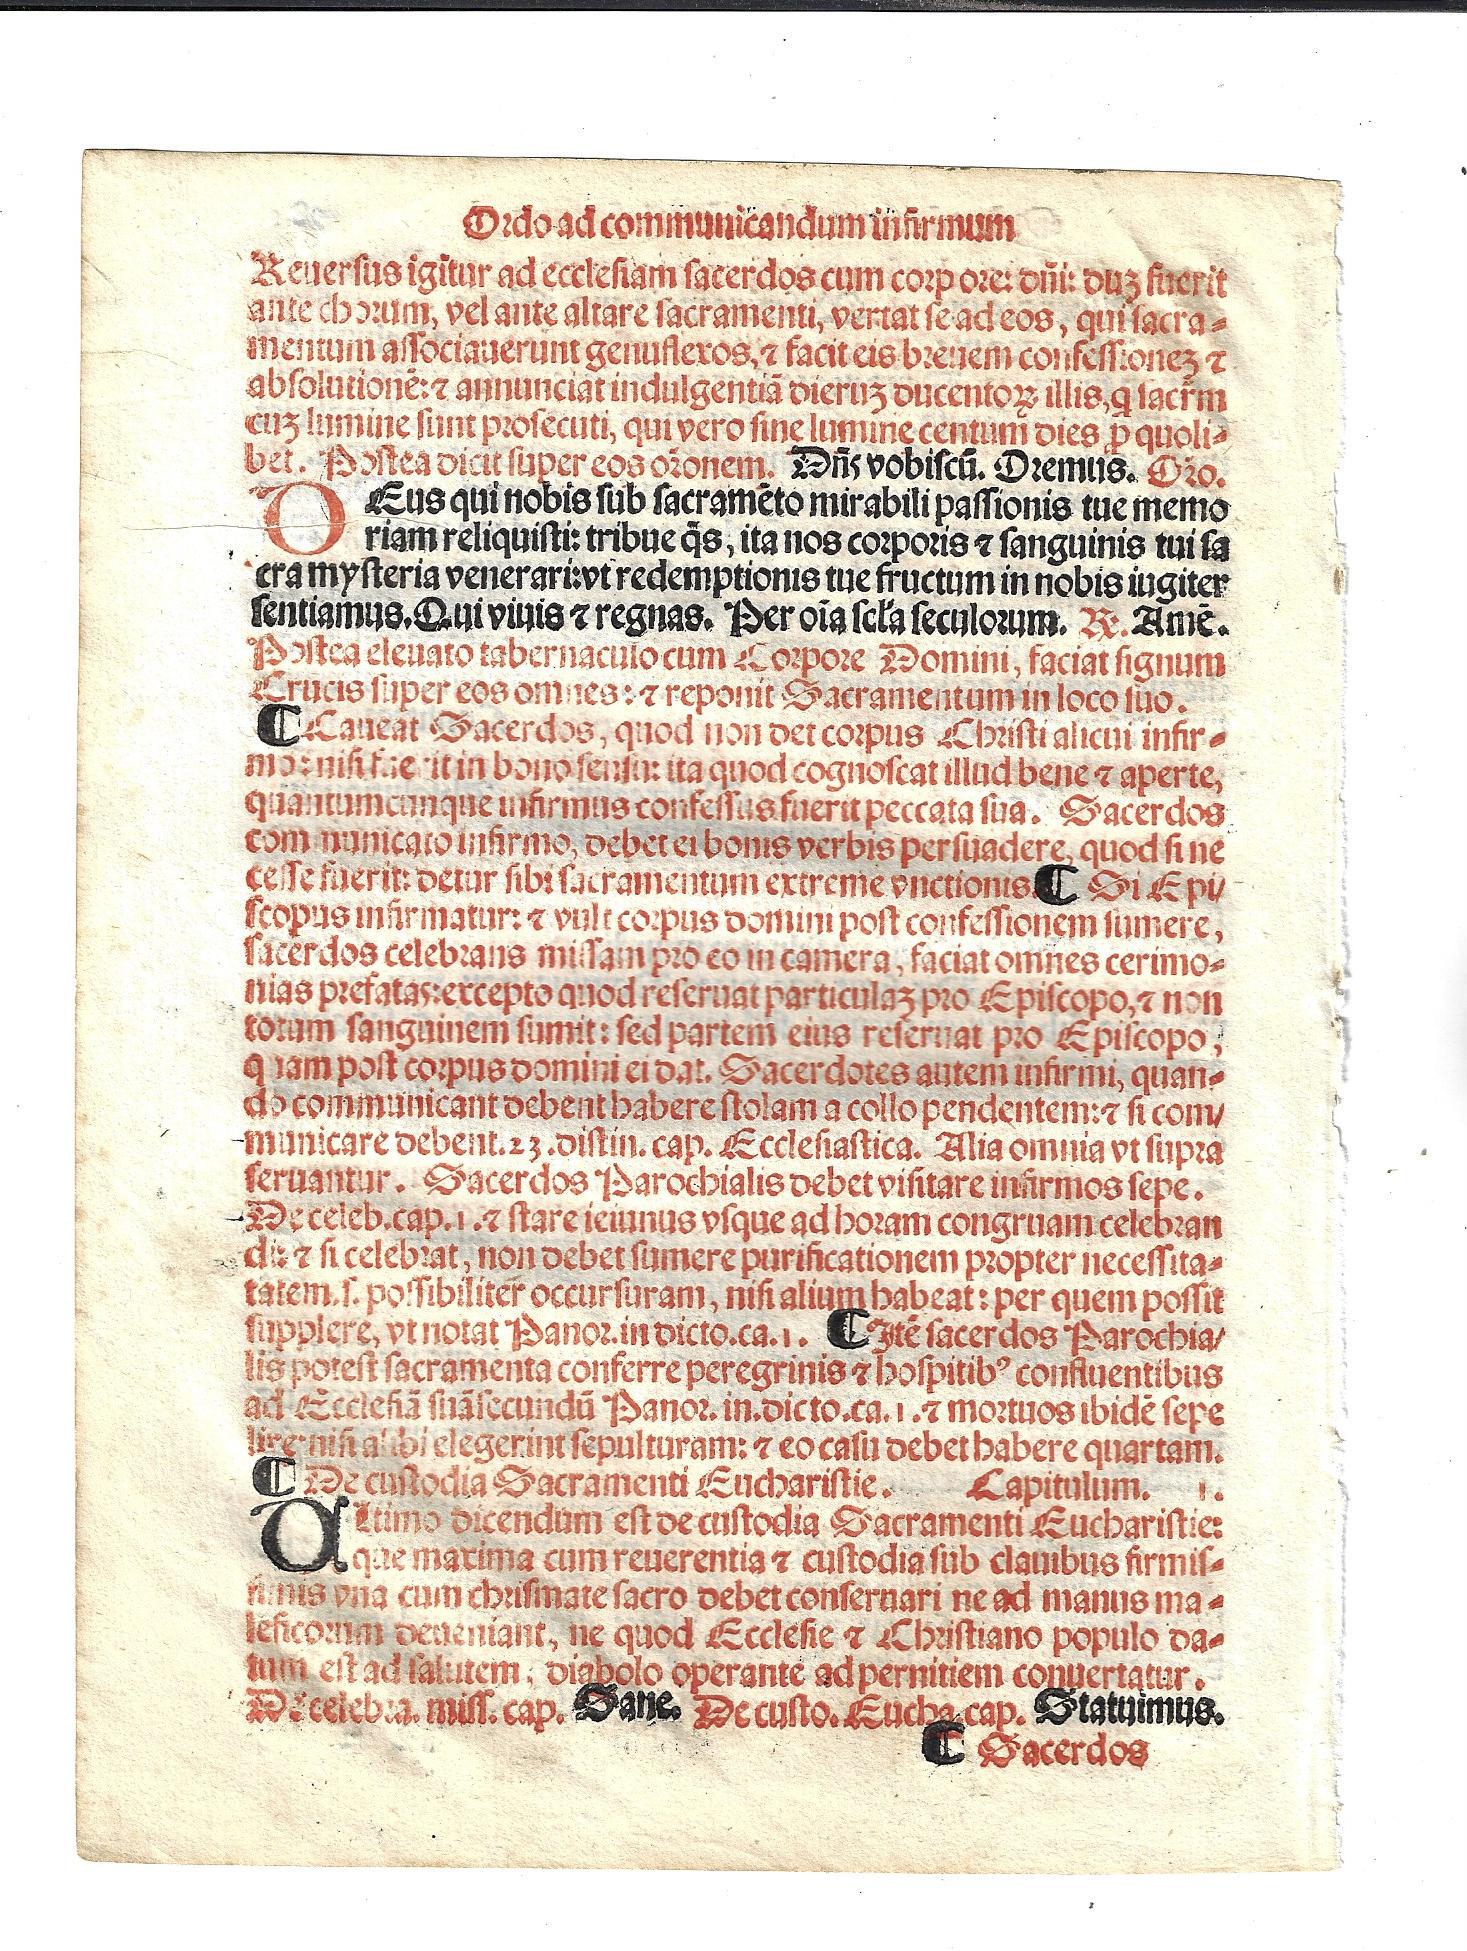 Ordo ad communicandum infirmum
Reuersus igitur ad ecclesiam sacerdos cum corpore: dñi: duꝫ fuerit
ante chorum, vel ante altare sacramenti, vertat se ad eos, qui sacra-
mentum associauerunt genuflexos, ⁊ facit eis breuem confessioneꝫ ⁊
absolutionē: ⁊ annunciat indulgentiā dieruꝫ ducentoꝝ illis, q̃ sacr̃m
cuꝫ lumine sunt prosecuti, qui vero sine lumine centum dies ꝓ quoli-
bet. Postea dicit super eos or̃onem. Dñs vobiscū. Oremus. Or̃o.
DEus qui nobis sub sacramēto mirabili passionis tue memo
riam reliquisti: tribue q̃s, ita nos corporis ⁊ sanguinis tui sa
cra mysteria venerari: vt redemptionis tue fructum in nobis iugiter
sentiamus. Qui viuis ⁊ regnas. Per oĩa scl'a seculorum. ℞. Amē.
Postea eleuato tabernaculo cum Corpore Domini, faciat signum
Crucis super eos omnes: ⁊ reponit Sacramentum in loco suo.
¶ Caueat Sacerdos, quod non det corpus Christi alicui infir-
mo: nisi fuerit in bono sensu: ita quod cognoscat illud bene ⁊ aperte,
quantumcunque infirmus confessus fuerit peccata sua. Sacerdos
communicato infirmo, debet ei bonis verbis persuadere, quod si ne
cesse fuerit: detur sibi sacramentum extreme vnctionis ¶ Si Epi/
scopus infirmatur: ⁊ vult corpus domini post confessionem sumere,
sacerdos celebrans missam pro eo in camera, faciat omnes cerimo-
nias prefatas: excepto quod reseruat particulaꝫ pro Episcopo, ⁊ non
totum sanguinem sumit: sed partem eius reseruat pro Episcopo,
quam post corpus domini ei dat. Sacerdotes autem infirmi, quan-
do communicant debent habere stolam a collo pendentem: ⁊ si com/
municare debent. 23. distin. cap. Ecclesiastica. Alia omnia vt supra
seruantur. Sacerdos Parochialis debet visitare infirmos sepe.
De celeb. cap. 1. ⁊ stare ieiunus vsque ad horam congruam celebran
di: ⁊ si celebrat, non debet sumere purificationem propter necessita-
tatem. s. possibiliter occursuram, nisi alium habeat: per quem possit
supplere, vt notat Panor. in dicto. ca. 1. ¶ Itē sacerdos Parochia/
lis potest sacramenta conferre peregrinis ⁊ hospitibꝰ confluentibus
ad Ecclesiā suā secundū Panor. in. dicto. ca. 1. ⁊ mortuos ibidē sepe
lire nisi alibi elegerint sepulturam: ⁊ eo casu debet habere quartam.
¶ De custodia Sacramenti Eucharistie. Capitulum. 1.
Ultimo dicendum est de custodia Sacramenti Eucharistie:
que maxima cum reuerentia ⁊ custodia sub clauibus firmis-
simis vna cum chrismate sacro debet conseruari ne ad manus ma-
leficorum deueniant, ne quod Ecclesie ⁊ Christiano populo da-
tum est ad salutem, diabolo operante ad pernitiem conuertatur.
De celebra. miss. cap. Sane. De custo. Eucha. cap. Statuimus.
¶ Sacerdos